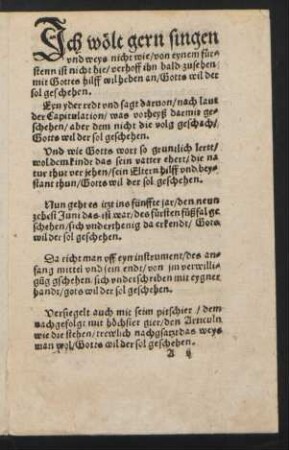 Ich wölt gern singen
vnd weys nicht wie/von eynem für-
stenn ist nicht hie/verhoff ihn bald zusehen/
mit Gottes hilff wil heben an/Gotts wil der
sol geschehen.
Eyn yder redt vnd sagt daruon/nach laut
der Capitulation/was vorheyß darmit ge-
schehen/aber dem nicht die volg geschach/
Gotts wil der sol geschehen.
Vnd wie Gotts wort so gruntlich lertt/
wol dem kinde das sein vatter ehert/die na
tur thut ver jehen/sein Eltern hilff vnd bey-
stant thun/Gotts wil der sol geschehen.
Nun geht es itzt ins fünffte jar/den neun
zehest Juni das ist war/des fürsten füßfal ge-
schehen/sich vnderthenig da erkendt/Gots
wil der sol geschehen.
Da richt man vff eyn instrument/des an-
fang mittel vnd sein endt/von jm verwilli-
gūg geschehen. sich vnderschriben mit eygner
handt/gots wil der sol geschehen.
Versiegelt auch mit seim pitschier/dem
nachgefolgt mit höchster gier/den Articuln
wie die stehen/trewlich nachgsatzt das weys
man wol/Gotts wil der sol geschehen.
A